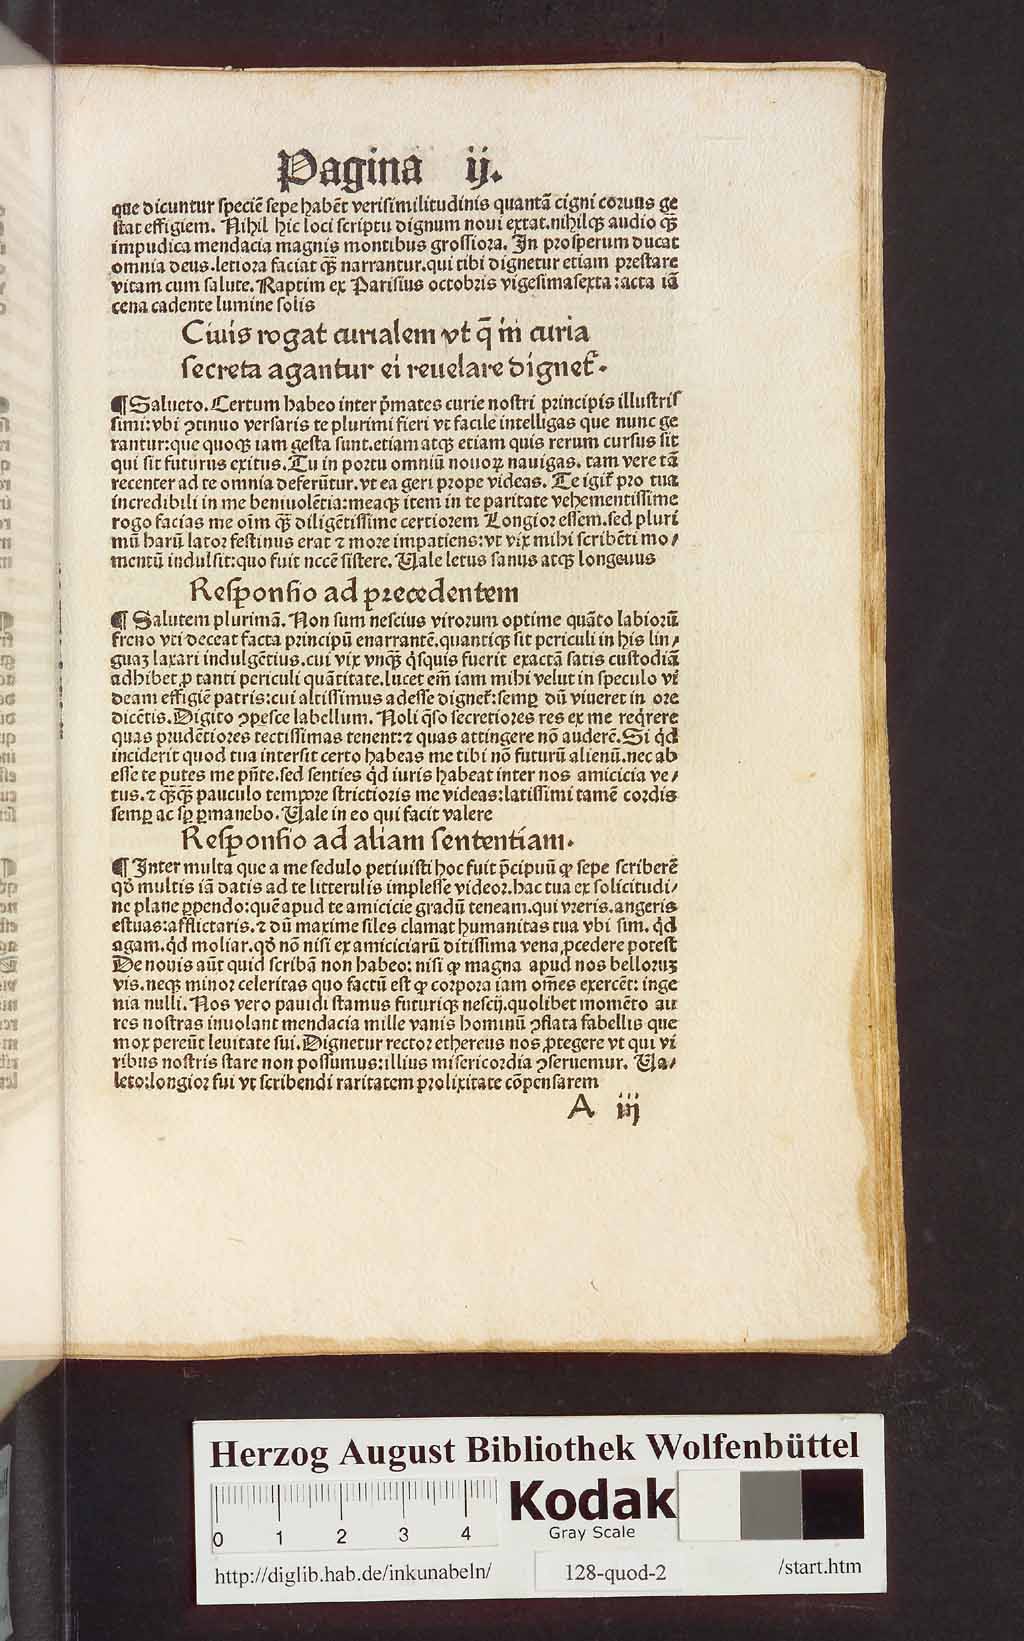 Pagina ij.
que dicuntur speciē sepe habēt verisimilitudinis quantā cigni coruus ge
stat effigiem. Nihil hic loci scriptu dignum noui extat. nihilqꝫ audio qꝫ
impudica mendacia magnis montibus grossiora. In prosperum ducat
omnia deus. letiora faciat qꝫ narrantur. qui tibi dignetur etiam prestare
vitam cum salute. Raptim ex Parisius octobris vigesimasexta: acta iā
cena cadente lumine solis
Ciuis rogat curialem vt q̄ in curia
secreta agantur ei reuelare dignet᷑.
¶ Salueto. Certum habeo inter p̄mates curie nostri principis illustris
simi: vbi ꝯtinuo versaris te plurimi fieri vt facile intelligas que nunc ge
rantur: que quoqꝫ iam gesta sunt. etiam atqꝫ etiam quis rerum cursus sit
qui sit futurus exitus. Tu in portu omniū nouoꝝ nauigas. tam vere tā
recenter ad te omnia deferūtur. vt ea geri prope videas. Te igit᷑ pro tua
incredibili in me beniuolētia: meaqꝫ item in te paritate vehementissime
rogo facias me oīm qꝫ diligētissime certiorem Longior essem. sed pluri
mū harū lator festinus erat ⁊ more impatiens: vt vix mihi scribēti mo/
mentū indulsit: quo fuit nccē sistere. Uale letus sanus atqꝫ longeuus
Responsio ad precedentem
¶ Salutem plurimā. Non sum nescius virorum optime quāto labiorū
freno vti deceat facta principū enarrantē. quantiqꝫ sit periculi in his lin/
guaꝫ laxari indulgētius. cui vix vnqꝫ q̇squis fuerit exactā satis custodiā
adhibet ꝓ tanti periculi quātitate. lucet em̄ iam mihi velut in speculo vi
deam effigiē patris: cui altissimus adesse dignet᷑: semꝑ dū viueret in ore
dicētis. Digito ꝯpesce labellum. Noli q̇so secretiores res ex me req̇rere
quas prudētiores tectissimas tenent: ⁊ quas attingere nō auderē. Si q̇d
inciderit quod tua intersit certo habeas me tibi nō futurū alienū. nec ab
esse te putes me pn̄te. sed senties q̇d iuris habeat inter nos amicicia ve/
tus. ⁊ qꝫqꝫ pauculo tempore strictioris me videas: latissimi tamē cordis
semꝑ ac sꝑ ꝑmanebo. Uale in eo qui facit valere
Responsio ad aliam sententiam.
¶ Inter multa que a me sedulo petiuisti hoc fuit p̄cipuū ꝙ sepe scriberē
qḋ multis iā datis ad te litterulis implesse videor. hac tua ex solicitudi/
ne plane ꝑpendo: quē apud te amicicie gradū teneam. qui vreris. angeris
estuas: afflictaris. ⁊ dū maxime siles clamat humanitas tua vbi sim. q̇d
agam. q̇d moliar. qḋ nō nisi ex amiciciarū ditissima vena ꝓcedere potest
De nouis aūt quid scribā non habeo: nisi ꝙ magna apud nos belloruꝫ
vis. neqꝫ minor celeritas quo factū est ꝙ corpora iam om̄es exercēt: inge
nia nulli. Nos vero pauidi stamus futuriqꝫ nescij. quolibet momēto au
res nostras inuolant mendacia mille vanis hominū ꝯflata fabellis que
mox pereūt leuitate sui. Dignetur rector ethereus nos ꝓtegere vt qui vi
ribus nostris stare non possumus: illius misericordia ꝯseruemur. Ua/
leto: longior fui vt scribendi raritatem prolixitate cōpensarem
A iij
Herzog August Bibliothek Wolfenbüttel
0 1 2 3 4
Kodak
Gray Scale
http://diglib.hab.de/inkunabeln/ 128-quod-2 /start.htm